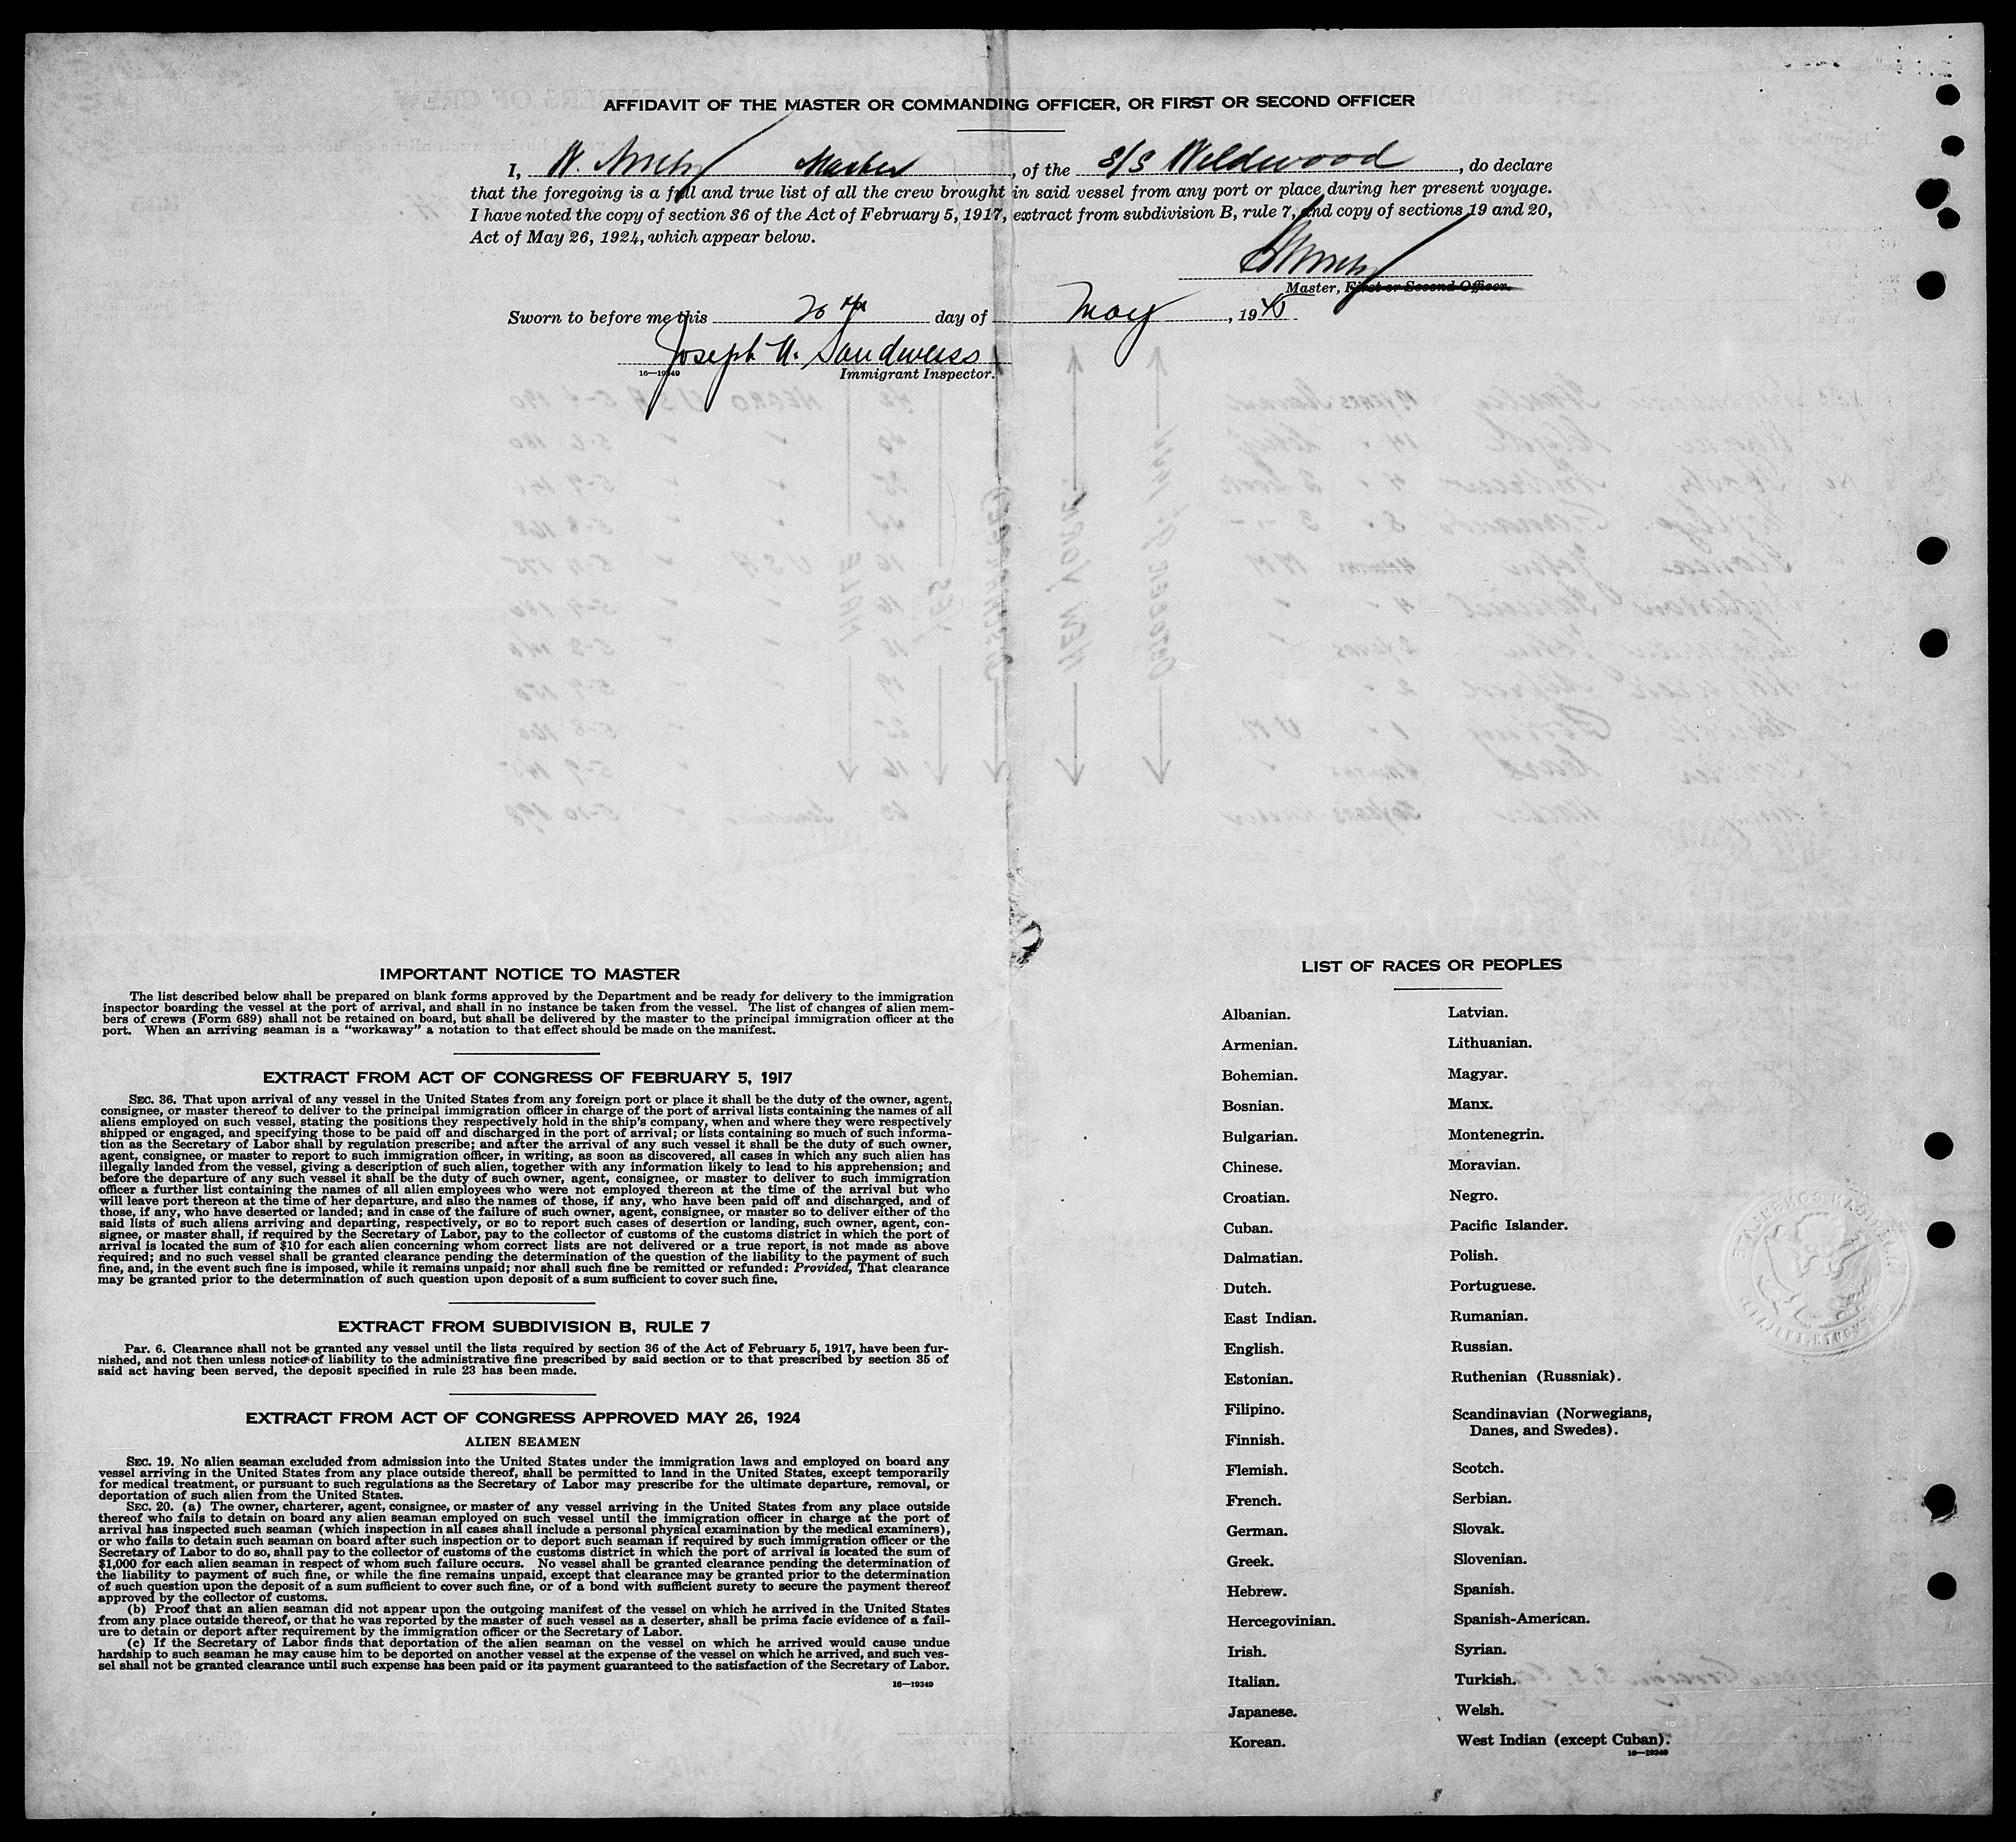 AFFIDAVIT OF THE MASTER OR COMMANDING OFFICER, OR FIRST OR SECOND OFFICER
I, W. Master, of the S/S Wildwood, do declare
that the foregoing is a full and true list of all the crew brought in said vessel from any port or place during her present voyage.
I have noted the copy of section 36 of the Act of February 5, 1917, extract from subdivision B, rule 7, and copy of sections 19 and 20,
Act of May 26, 1924, which appear below.
Master, First or Second Officer.
Sworn to before me this 20th day of May, 1940
Joseph A. Sandweiss
16—19349 Immigrant Inspector.
IMPORTANT NOTICE TO MASTER
The list described below shall be prepared on blank forms approved by the Department and be ready for delivery to the immigration
inspector boarding the vessel at the port of arrival, and shall in no instance be taken from the vessel. The list of changes of alien mem-
bers of crews (Form 689) shall not be retained on board, but shall be delivered by the master to the principal immigration officer at the
port. When an arriving seaman is a "workaway" a notation to that effect should be made on the manifest.
EXTRACT FROM ACT OF CONGRESS OF FEBRUARY 5, 1917
SEC. 36. That upon arrival of any vessel in the United States from any foreign port or place it shall be the duty of the owner, agent,
consignee, or master thereof to deliver to the principal immigration officer in charge of the port of arrival lists containing the names of all
aliens employed on such vessel, stating the positions they respectively hold in the ship's company, when and where they were respectively
shipped or engaged, and specifying those to be paid off and discharged in the port of arrival; or lists containing so much of such informa-
tion as the Secretary of Labor shall by regulation prescribe; and after the arrival of any such vessel it shall be the duty of such owner,
agent, consignee, or master to report to such immigration officer, in writing, as soon as discovered, all cases in which any such alien has
illegally landed from the vessel, giving a description of such alien, together with any information likely to lead to his apprehension; and
before the departure of any such vessel it shall be the duty of such owner, agent, consignee, or master to deliver to such immigration
officer a further list containing the names of all alien employees who were not employed thereon at the time of the arrival but who
will leave port thereon at the time of her departure, and also the names of those, if any, who have been paid off and discharged, and of
those, if any, who have deserted or landed; and in case of the failure of such owner, agent, consignee, or master so to deliver either of the
said lists of such aliens arriving and departing, respectively, or so to report such cases of desertion or landing, such owner, agent, con-
signee, or master shall, if required by the Secretary of Labor, pay to the collector of customs of the customs district in which the port of
arrival is located the sum of $10 for each alien concerning whom correct lists are not delivered or a true report is not made as above
required; and no such vessel shall be granted clearance pending the determination of the question of the liability to the payment of such
fine, and, in the event such fine is imposed, while it remains unpaid; nor shall such fine be remitted or refunded: Provided, That clearance
may be granted prior to the determination of such question upon deposit of a sum sufficient to cover such fine.
EXTRACT FROM SUBDIVISION B, RULE 7
Par. 6. Clearance shall not be granted any vessel until the lists required by section 36 of the Act of February 5, 1917, have been fur-
nished, and not then unless notice of liability to the administrative fine prescribed by said section or to that prescribed by section 35 of
said act having been served, the deposit specified in rule 23 has been made.
EXTRACT FROM ACT OF CONGRESS APPROVED MAY 26, 1924
ALIEN SEAMEN
SEC. 19. No alien seaman excluded from admission into the United States under the immigration laws and employed on board any
vessel arriving in the United States from any place outside thereof, shall be permitted to land in the United States, except temporarily
for medical treatment, or pursuant to such regulations as the Secretary of Labor may prescribe for the ultimate departure, removal, or
deportation of such alien from the United States.
SEC. 20. (a) The owner, charterer, agent, consignee, or master of any vessel arriving in the United States from any place outside
thereof who fails to detain on board any alien seaman employed on such vessel until the immigration officer in charge at the port of
arrival has inspected such seaman (which inspection in all cases shall include a personal physical examination by the medical examiners),
or who fails to detain such seaman on board after such inspection or to deport such seaman if required by such immigration officer or the
Secretary of Labor to do so, shall pay to the collector of customs of the customs district in which the port of arrival is located the sum of
$1,000 for each alien seaman in respect of whom such failure occurs. No vessel shall be granted clearance pending the determination of
the liability to payment of such fine, or while the fine remains unpaid, except that clearance may be granted prior to the determination
of such question upon the deposit of a sum sufficient to cover such fine, or of a bond with sufficient surety to secure the payment thereof
approved by the collector of customs.
(b) Proof that an alien seaman did not appear upon the outgoing manifest of the vessel on which he arrived in the United States
from any place outside thereof, or that he was reported by the master of such vessel as a deserter, shall be prima facie evidence of a fail-
ure to detain or deport after requirement by the immigration officer or the Secretary of Labor.
(c) If the Secretary of Labor finds that deportation of the alien seaman on the vessel on which he arrived would cause undue
hardship to such seaman he may cause him to be deported on another vessel at the expense of the vessel on which he arrived, and such ves-
sel shall not be granted clearance until such expense has been paid or its payment guaranteed to the satisfaction of the Secretary of Labor.
16—19349
LIST OF RACES OR PEOPLES
Albanian.
Armenian.
Bohemian.
Bosnian.
Bulgarian.
Chinese.
Croatian.
Cuban.
Dalmatian.
Dutch.
East Indian.
English.
Estonian.
Filipino.
Finnish.
Flemish.
French.
German.
Greek.
Hebrew.
Hercegovinian.
Irish.
Italian.
Japanese.
Korean.
Latvian.
Lithuanian.
Magyar.
Manx.
Montenegrin.
Moravian.
Negro.
Pacific Islander.
Polish.
Portuguese.
Rumanian.
Russian.
Ruthenian (Russniak).
Scandinavian (Norwegians,
Danes, and Swedes).
Scotch.
Serbian.
Slovak.
Slovenian.
Spanish.
Spanish-American.
Syrian.
Turkish.
Welsh.
West Indian (except Cuban).
16—19349